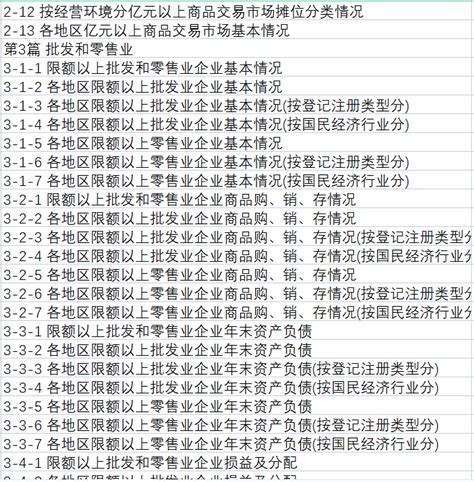 2-12 按经营环境分亿元以上商品交易市场摊位分类情况
2-13 各地区亿元以上商品交易市场基本情况
第3篇 批发和零售业
3-1-1 限额以上批发和零售业企业基本情况
3-1-2 各地区限额以上批发业企业基本情况
3-1-3 各地区限额以上批发业企业基本情况(按登记注册类型分)
3-1-4 各地区限额以上批发业企业基本情况(按国民经济行业分)
3-1-5 各地区限额以上零售业企业基本情况
3-1-6 各地区限额以上零售业企业基本情况(按登记注册类型分)
3-1-7 各地区限额以上零售业企业基本情况(按国民经济行业分)
3-2-1 限额以上批发和零售业企业商品购、销、存情况
3-2-2 各地区限额以上批发业企业商品购、销、存情况
3-2-3 各地区限额以上批发业企业商品购、销、存情况(按登记注册类型
3-2-4 各地区限额以上批发业企业商品购、销、存情况(按国民经济行业
3-2-5 各地区限额以上零售业企业商品购、销、存情况
3-2-6 各地区限额以上零售业企业商品购、销、存情况(按登记注册类型
3-2-7 各地区限额以上零售业企业商品购、销、存情况(按国民经济行业
3-3-1 限额以上批发和零售业企业年末资产负债
3-3-2 各地区限额以上批发业企业年末资产负债
3-3-3 各地区限额以上批发业企业年末资产负债(按登记注册类型分)
3-3-4 各地区限额以上批发业企业年末资产负债(按国民经济行业分)
3-3-5 各地区限额以上零售业企业年末资产负债
3-3-6 各地区限额以上零售业企业年末资产负债(按登记注册类型分)
3-3-7 各地区限额以上零售业企业年末资产负债(按国民经济行业分)
3-4-1 限额以上批发和零售业企业损益及分配
3-4-2 各地区限额以上批发业企业损益及分配